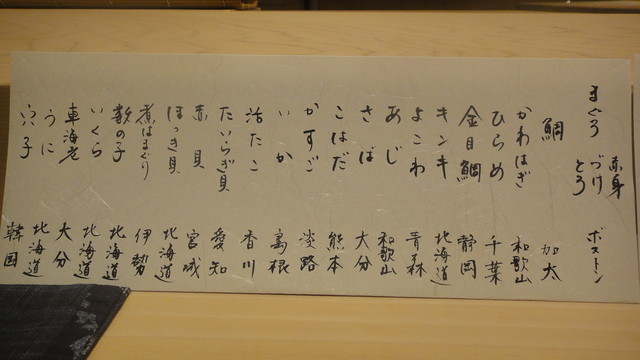 まぐろ 赤身 づけ とろ ボストン
鯛 加太
かわはぎ 和歌山
ひらめ 千葉
金目鯛 静岡
キンキ 北海道
よこわ 青森
あじ 和歌山
さば 大分
こはだ 熊本
かすご 淡路
いか 島根
活たこ 香川
たいらぎ貝 愛知
赤貝 宮城
ほっき貝 北海道
煮はまぐり 伊勢
数の子 北海道
いくら 北海道
車海老 大分
うに 北海道
穴子 韓国